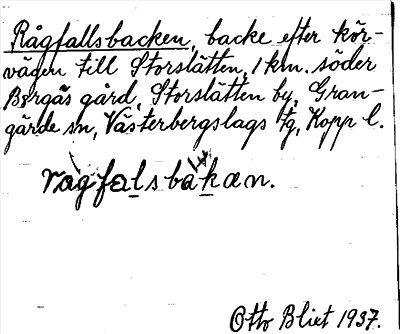 Rågfallsbacken, backe efter kör-
vägen till Storslätten, 1 km. söder
Bergås gård, Storslätten by, Gran-
gärde sn, Västerbergslags tg, Kopp l.
rågfalsbakæn.
Otto Bliet 1937.